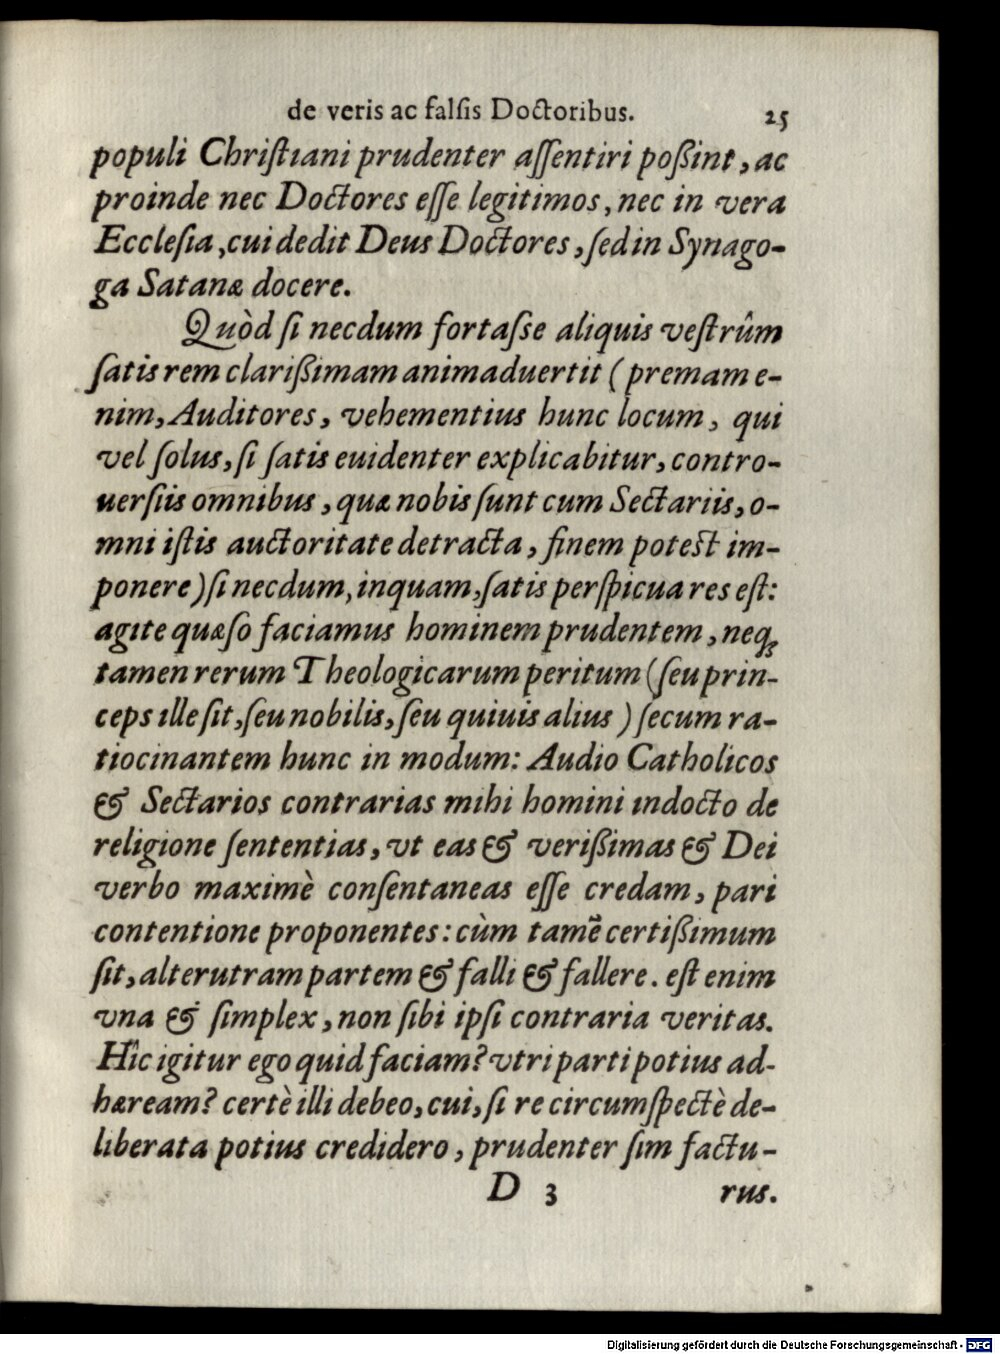 de veris ac falſis Doctoribus. 25
populi Chriſtiani prudenter aſſentiri poßint, ac
proinde nec Doctores eſſe legitimos, nec in vera
Eccleſia, cui dedit Deus Doctores, ſed in Synago-
ga Satanæ docere.
Quòd ſi necdum fortaſse aliquis veſtrûm
ſatis rem clarißimam animaduertit (premam e-
nim, Auditores, vehementius hunc locum, qui
vel ſolus, ſi ſatis euidenter explicabitur, contro-
uerſiis omnibus, quæ nobis ſunt cum Sectariis, o-
mni iſtis auctoritate detracta, finem poteſt im-
ponere) ſi necdum, inquam, ſatis perſpicua res eſt:
agite quæſo faciamus hominem prudentem, neq́;
tamen rerum Theologicarum peritum (ſeu prin-
ceps ille ſit, ſeu nobilis, ſeu quiuis alius) ſecum ra-
tiocinantem hunc in modum: Audio Catholicos
& Sectarios contrarias mihi homini indocto de
religione ſententias, vt eas & verißimas & Dei
verbo maximè conſentaneas eſſe credam, pari
contentione proponentes: cùm tamẽ certißimum
ſit, alterutram partem & falli & fallere. eſt enim
vna & ſimplex, non ſibi ipſi contraria veritas.
Hîc igitur ego quid faciam? vtri parti potius ad-
hæream? certè illi debeo, cui, ſi re circumſpectè de-
liberata potius credidero, prudenter ſim factu-
D 3 rus.
Digitalisierung gefördert durch die Deutsche Forschungsgemeinschaft - DFG